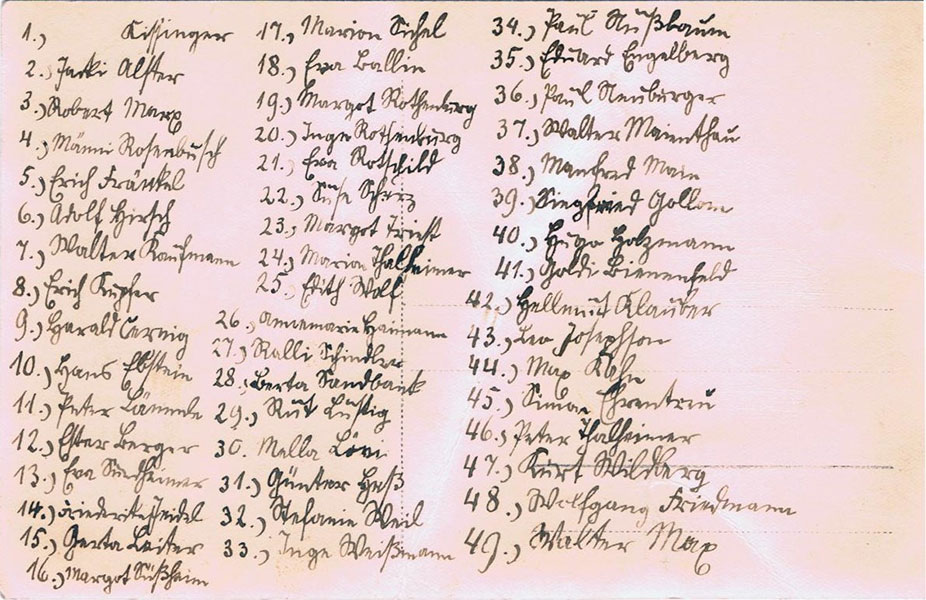 1.) Kissinger
2.) Jacki Alster
3.) Robert Marx
4.) Männi Rosenbusch
5.) Erich Fränkel
6.) Adolf Hirsch
7.) Walter Kaufmann
8.) Erich Kupfer
9.) Harald
10.) Hans Ebstein
11.) Peter
12.) Ester Berger
13.) Eva Sundheimer
14.) Friederike
15.) Berta Leiter
16.) Margot Süßheim
17.) Marion Sichel
18.) Eva Ballin
19.) Margot Rothenburg
20.) Inge Rothenburg
21.) Eva Rotschild
22.) Suse
23.) Margot Triest
24.) Marion Thalheimer
25.) Edith Wolf
26.) Annemarie Haimann
27.) Ralli Schindler
28.) Berta Sandbank
29.) Rut Lustig
30. Mella Lövi
31.) Günter Heß
32.) Stefanie Weil
33.) Inge Weißmann
34.) Paul Nußbaum
35.) Eduard Engelberg
36.) Paul Neuburger
37.) Walter Mainthau
38.) Manfred Main
39.) Siegfried Gollom
40.) Hugo Holzmann
41.) Goldi Bienenfeld
42.) Hellmut Klauber
43.) Leo Josephson
44.) Max Kohn
45.) Simon Ehrentreu
46.) Peter Thalheimer
47.) Kurt Wildberg
48.) Wolfgang Friedmann
49.) Walter Max